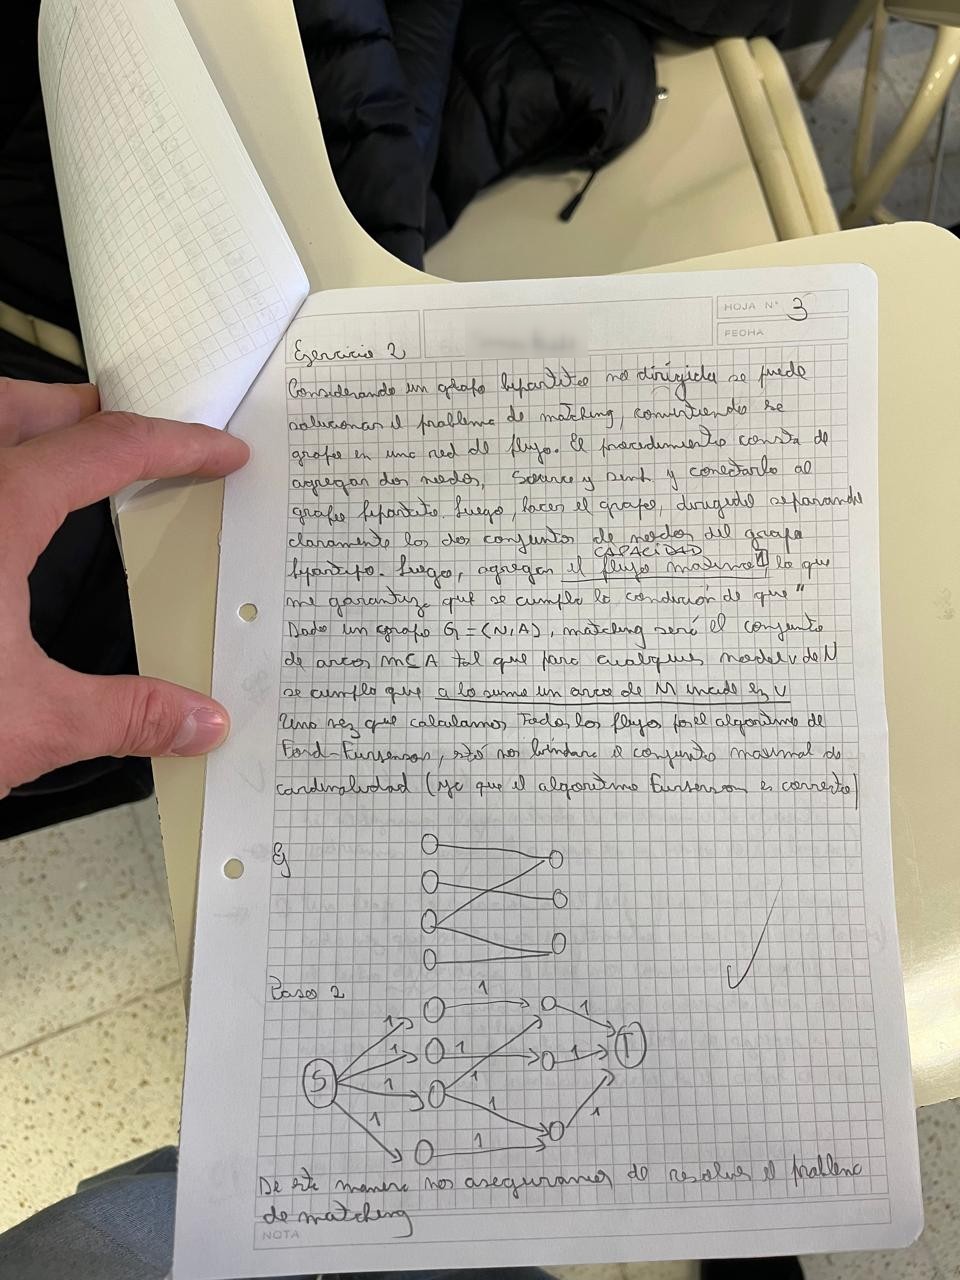 HOJA N° 3
FECHA
Ejercicio 2
Considerando un grafo bipartito no dirigido se puede
solucionar el problema de matching, convirtiendo se
grafo en una red de flujo. El procedimiento consta de
agregar dos nodos, source y sink y conectarlo al
grafo bipartito. Luego, hacer el grafo, dirigido separando
claramente los dos conjuntos de nodos del grafo
CAPACIDAD
bipartito. Luego, agregar el flujo maximo 1, lo que
me garantiza que se cumpla la condición de que "
Dado un grafo G=(N,A), matching será el conjunto
de arcos M⊂A tal que para cualquier nodo v de N
se cumple que a lo sumo un arco de M incide en v
Una vez que calculamos todos los flujos por el algoritmo de
Ford-Fulkerson, esto nos brindara el conjunto maximal de
cardinalidad (ya que el algoritmo es correcto)
Ej
Paso 2
1
1
1
1
1
1
1
1
1
1
1
1
S
T
De esta manera nos aseguramos de resolver el problema
de matching
NOTA